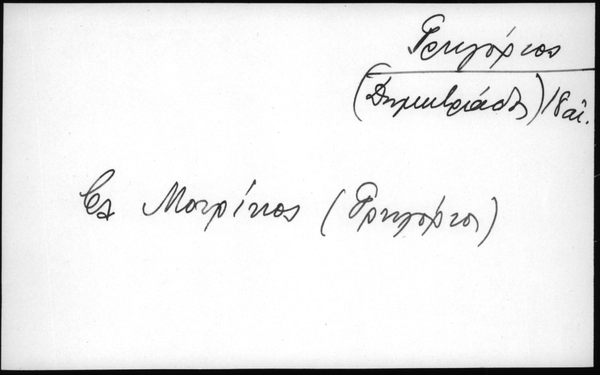 Γρηγόριος
(Δημητριάδος) 18 αἰ.
βλ Μουρίκιος (Γρηγόριος)